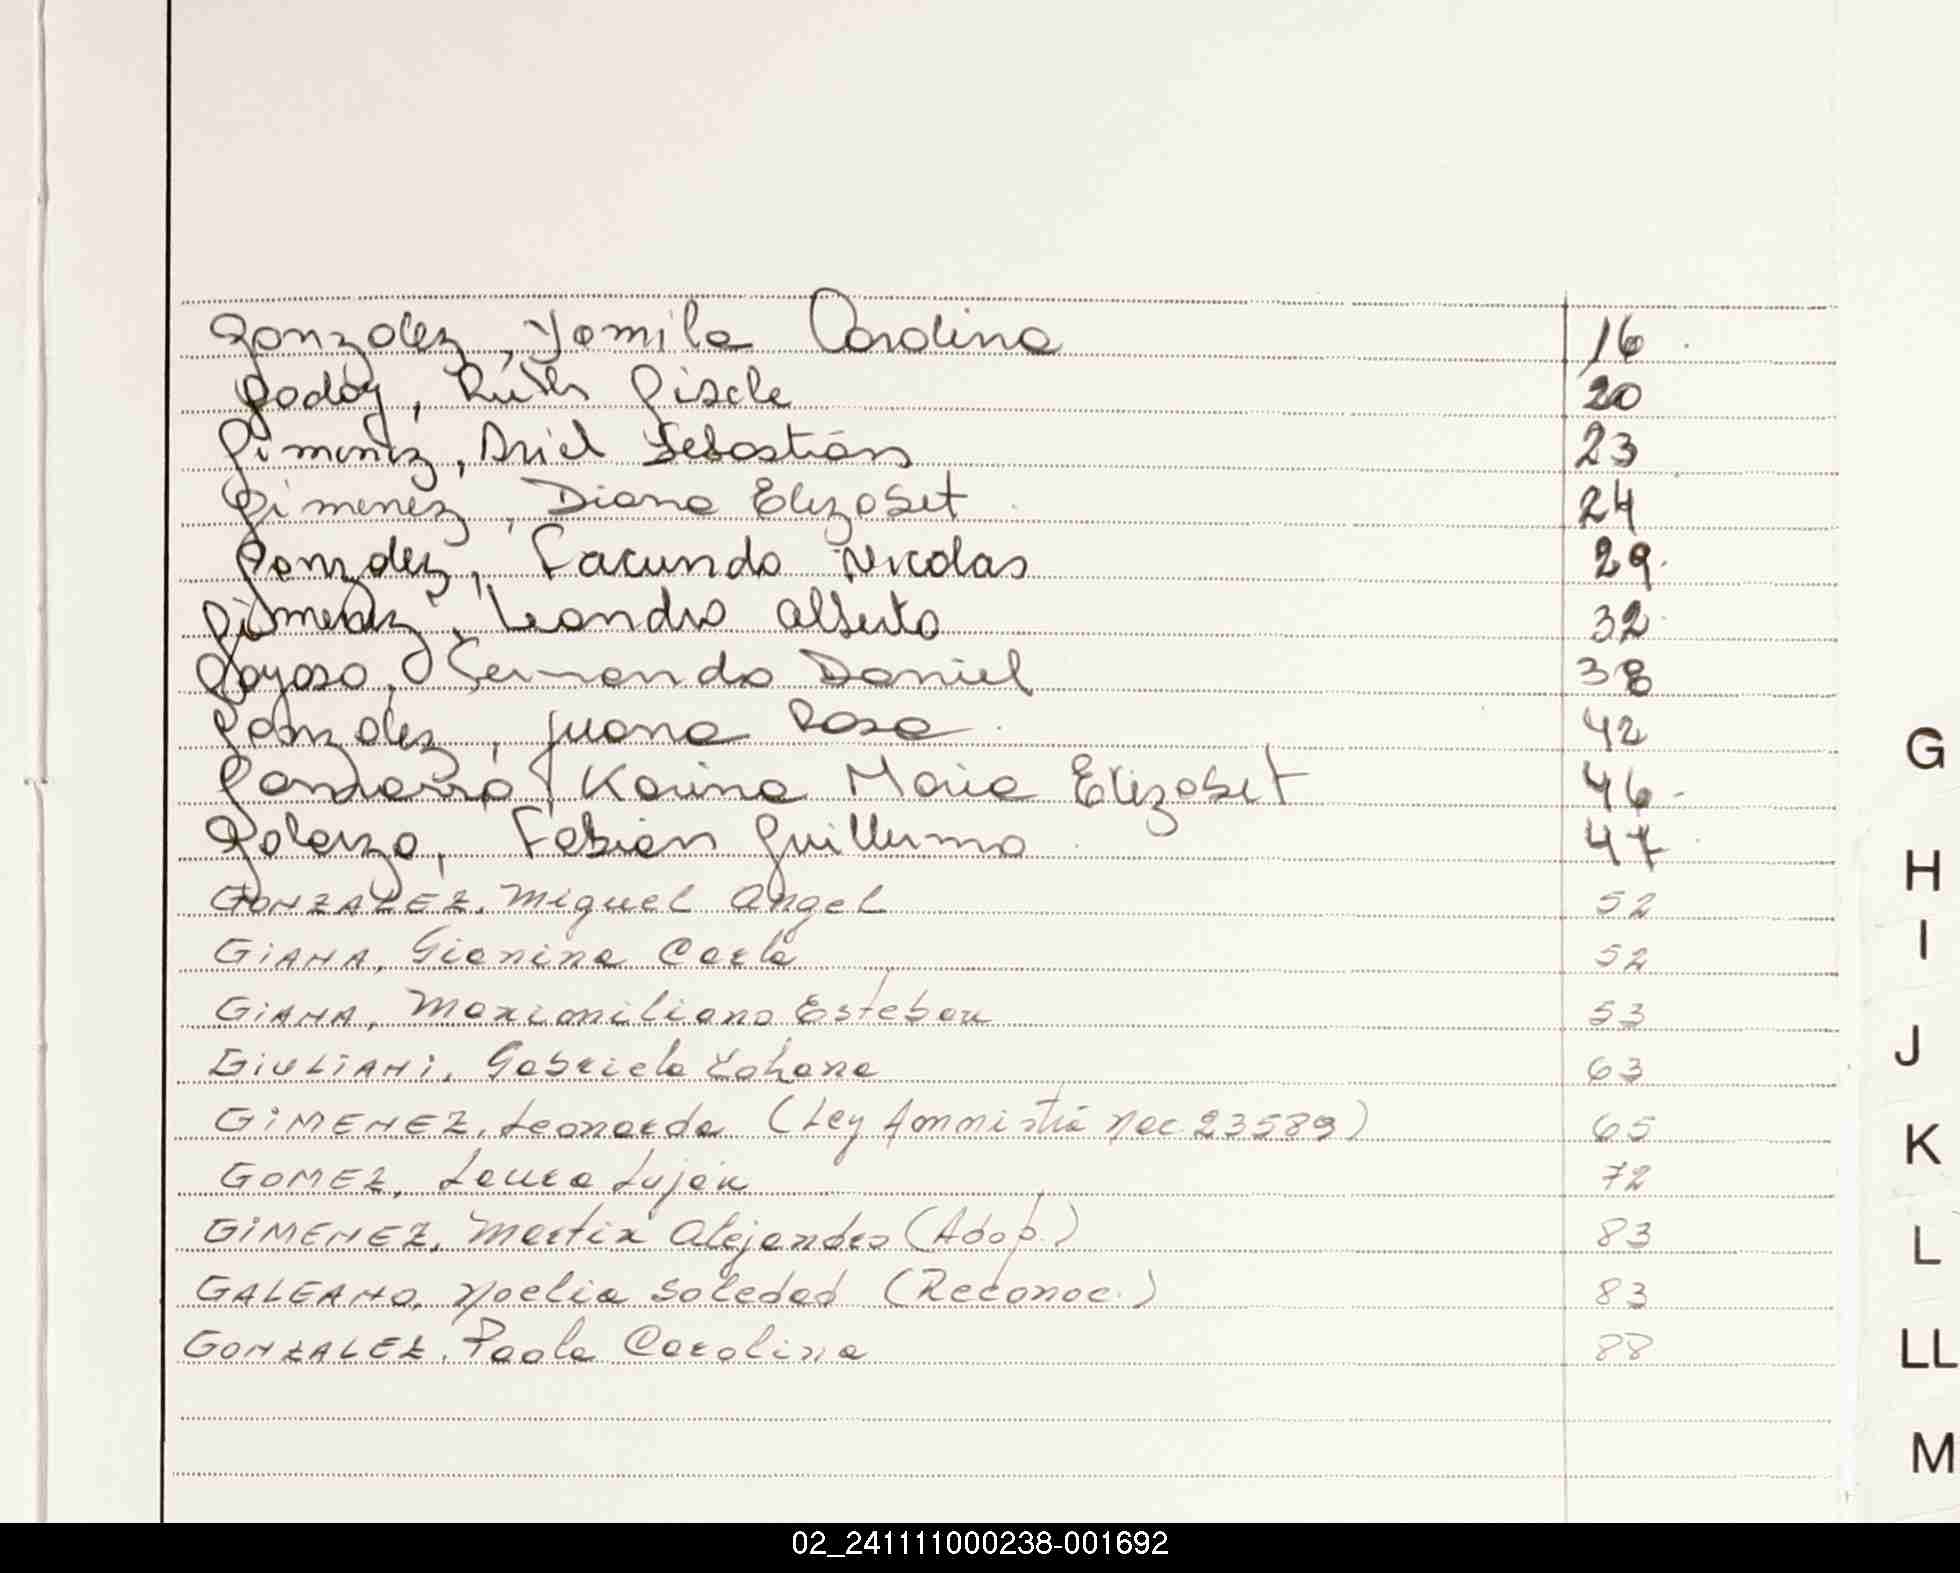 Gonzalez, Yamila Carolina 16
Godoy, Ruth Gisele 20
Gimenez, Ariel Sebastián 23
Gimenez, Diana Elizabet 24
Gonzalez, Facundo Nicolas 29
Gimenez, Leandro Alberto 32
Gayoso, Fernando Daniel 38
Gonzalez, Juana Rosa 42
Karina Maria Elizabet 46
Galarza, Fabian Guillermo 47
GONZALEZ, Miguel Angel 52
GIANA, Gianina Carla 52
GIANA, Maximiliano Esteban 53
GIULIANI, Gabriela Yohana 63
GIMENEZ, Leonarda (Ley Ammistia Nac. 23589) 65
GOMEZ, Laura Luján 72
GIMENEZ, Martin Alejandro (Adop.) 83
GALEANO, Noelia Soledad (Reconoc.) 83
GONZALEZ, Paola Carolina 88
G
H
I
J
K
L
LL
M
02_241111000238-001692